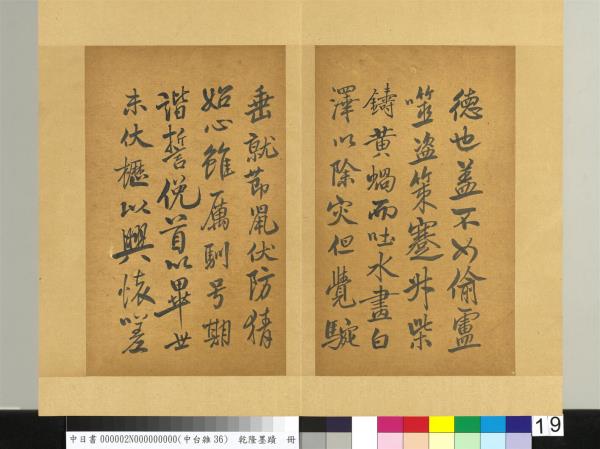 德也盖不如偷盧
噬盗策蹇升柴
鑄黄蝎而吐水畫白
澤以除灾但覺駞
垂就節鼠伏防猜
始心雖厲馴号期
諧誓俛首以畢世
未伏櫪以興懐嗟
中日書000002N000000000(中台雜36) 乾隆墨蹟 冊
19